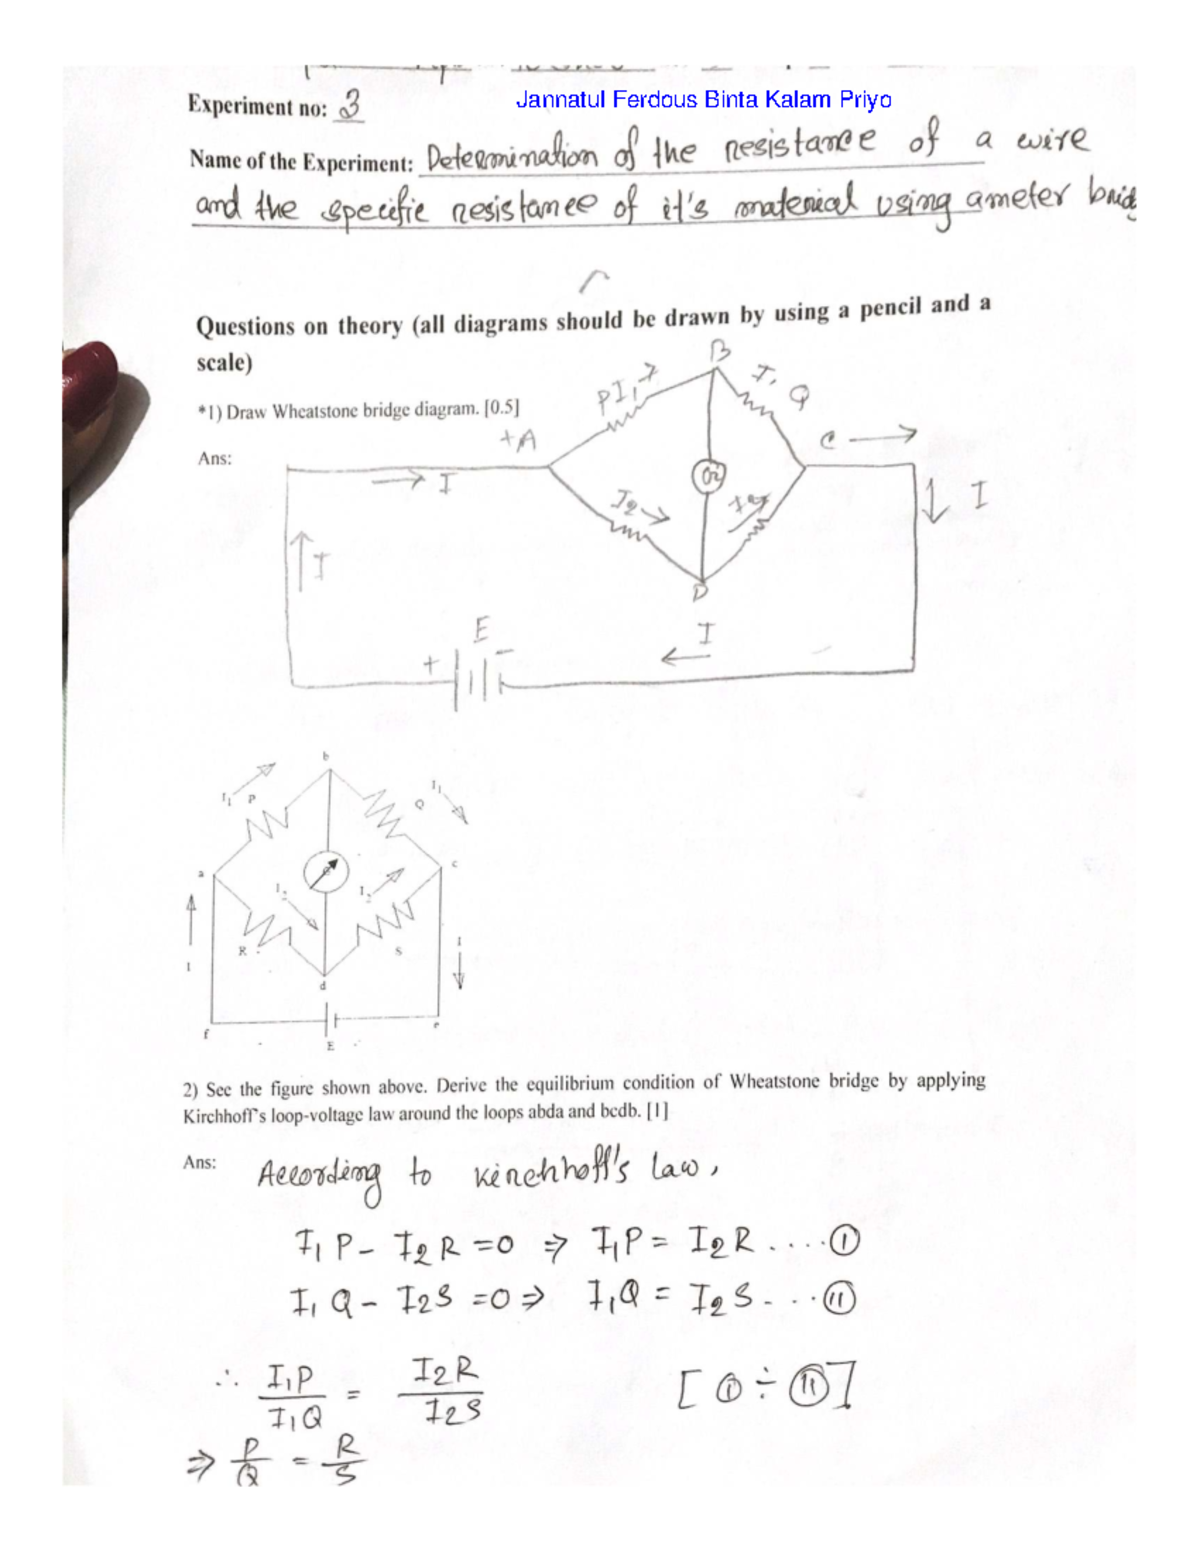 Experiment no: 3
Jannatul Ferdous Binta Kalam Priyo
Name of the Experiment: Determination of the resistance of a wire
and the specific resistance of it's material using ameter brid
Questions on theory (all diagrams should be drawn by using a pencil and a
scale)
*1) Draw Wheatstone bridge diagram. [0.5]
Ans:
B
P I₁ I₁ Q
+A C
I G I
I₂
I
D
E I
+ -
b
I₁ P Q I₁
a c
I₂ I₂
R S
I I
d
f e
E
2) See the figure shown above. Derive the equilibrium condition of Wheatstone bridge by applying
Kirchhoff's loop-voltage law around the loops abda and bcdb. [1]
Ans: According to Kirchhoff's law,
I₁ P - I₂ R = 0 ⇒ I₁P = I₂ R ....(I)
I₁ Q - I₂S = 0 ⇒ I₁Q = I₂ S...(II)
∴ I₁P/I₁Q = I₂R/I₂S [(I) ÷ (II)]
⇒ P/Q = R/S